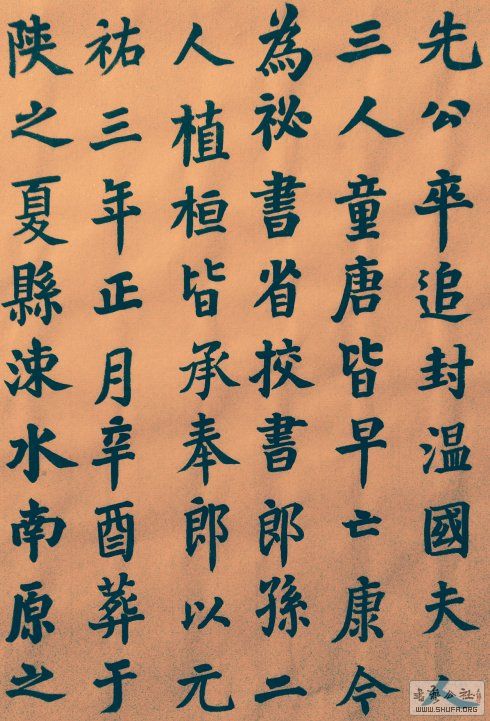 先公卒追封溫國夫人
三人童唐皆早亡康今
為祕書省挍書郎孫二
人植桓皆承奉郎以元
祐三年正月辛酉葬于
陝之夏縣涑水南原之
WWW.SHUFA.ORG